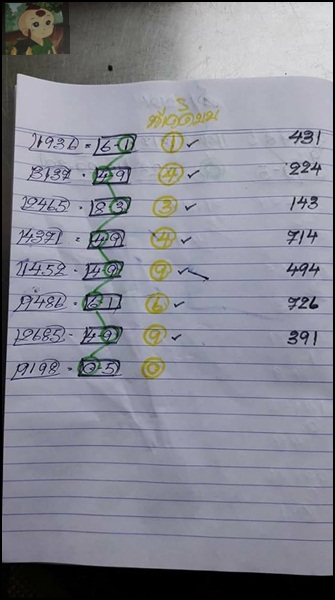 ที่ตี๋บน
4936 = 61 1 ✓ 431
3137 - 49 4 ✓ 224
2465 - 23 3 ✓ 143
4371 = 49 4 ✓ 714
11452 - 49 9 ✓ 494
9486 - 61 6 ✓ 726
2685 - 49 9 ✓ 391
9198 - 05 0